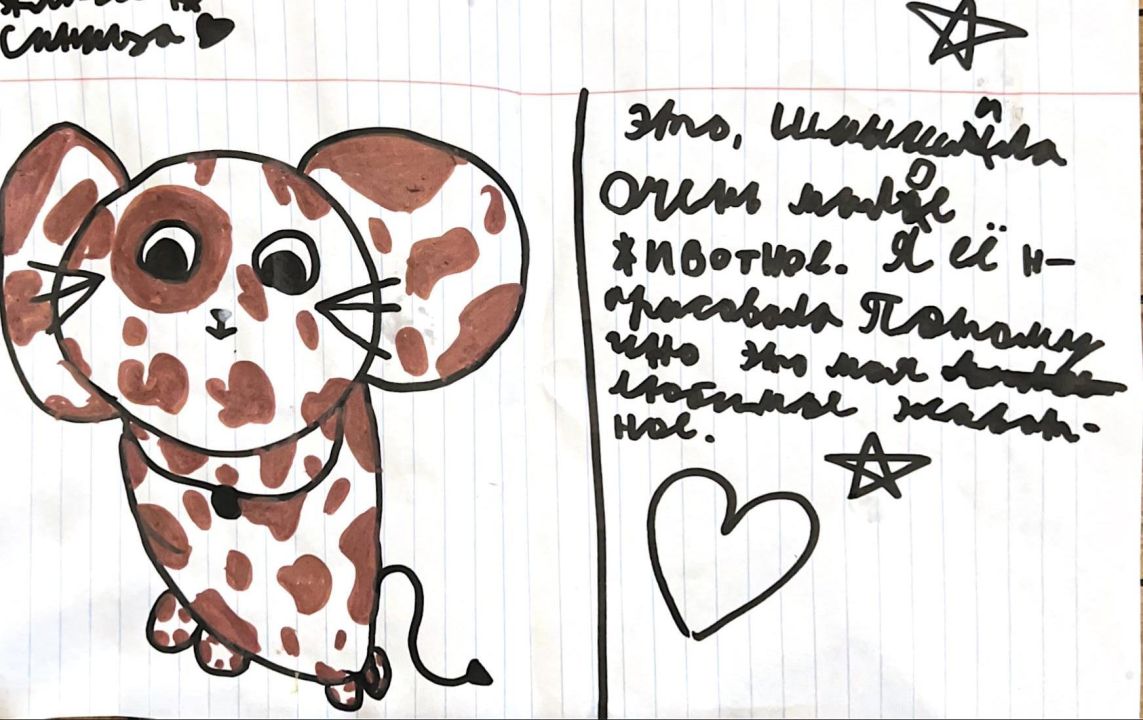 Это, шиншилла
Очень милое
животное. Я её н-
арисовала Потому
что это моя
любимые живот-
ное.